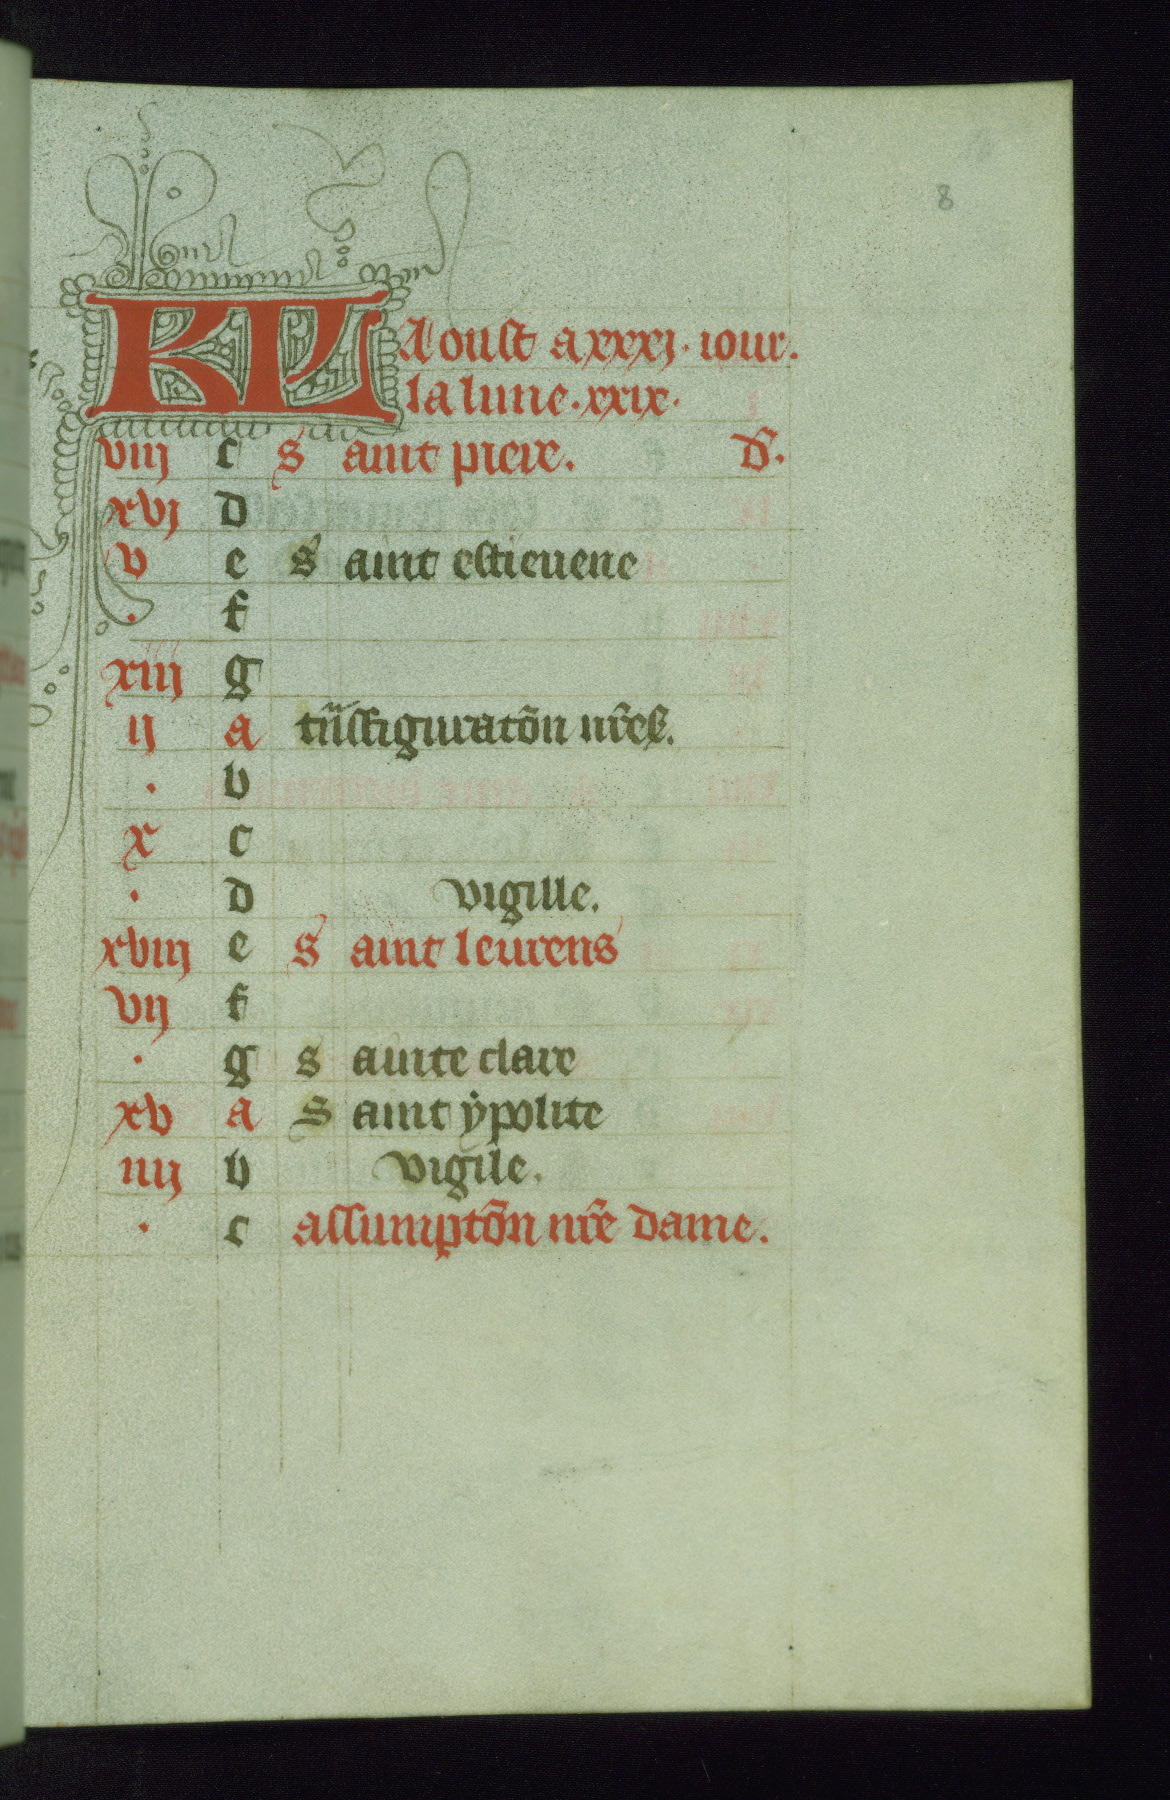 8
KL Aoust a xxxj. iour.
la lune. xxix.
viij c saint piere. D.
xvj d
v e saint estieuene
. f
xiij g
ij a tn̄sfiguratōn nr̄e
. b
x c
. d vigille.
xviij e saint leurens
vij f
. g sainte clare
xv a saint ẏpolite
iiij b vigile.
. c assumptōn nr̄e dame.